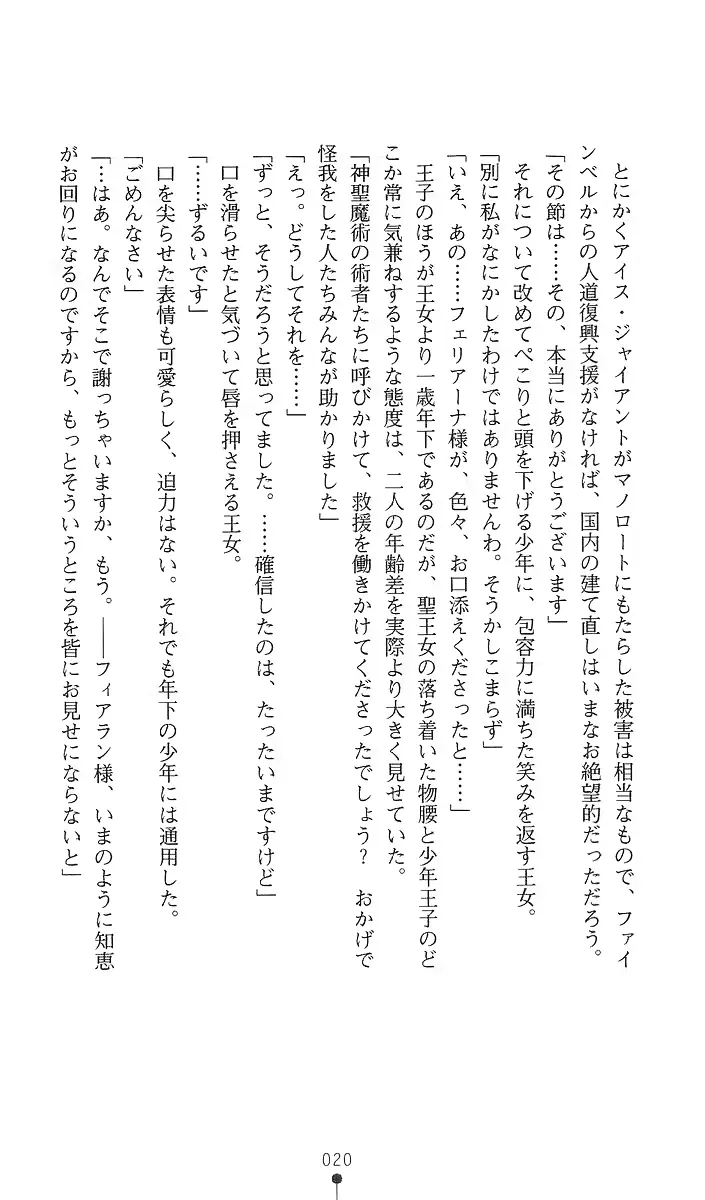 とにかくアイス・ジャイアントがマノロートにもたらした被害は相当なもので、ファイ
ンベルからの人道復興支援がなければ、国内の建て直しはいまなお絶望的だっただろう。
「その節は……その、本当にありがとうございます」
　それについて改めてぺこりと頭を下げる少年に、包容力に満ちた笑みを返す王女。
「別に私がなにかしたわけではありませんわ。そうかしこまらず」
「いえ、あの……フェリアーナ様が、色々、お口添えくださったと……」
　王子のほうが王女より一歳年下であるのだが、聖王女の落ち着いた物腰と少年王子のど
こか常に気兼ねするような態度は、二人の年齢差を実際より大きく見せていた。
「神聖魔術の術者たちに呼びかけて、救援を働きかけてくださったでしょう？　おかげで
怪我をした人たちみんなが助かりました」
「えっ。どうしてそれを……」
「ずっと、そうだろうと思ってました。……確信したのは、たったいまですけど」
　口を滑らせたと気づいて唇を押さえる王女。
「……ずるいです」
　口を尖らせた表情も可愛らしく、迫力はない。それでも年下の少年には通用した。
「ごめんなさい」
「…はあ。なんでそこで謝っちゃいますか、もう。――フィアラン様、いまのように知恵
がお回りになるのですから、もっとそういうところを皆にお見せにならないと」
020